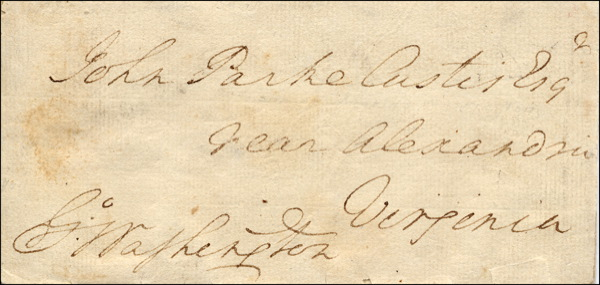 John Parke Custis Esqr
near Alexandria
Virginia
Go: Washington